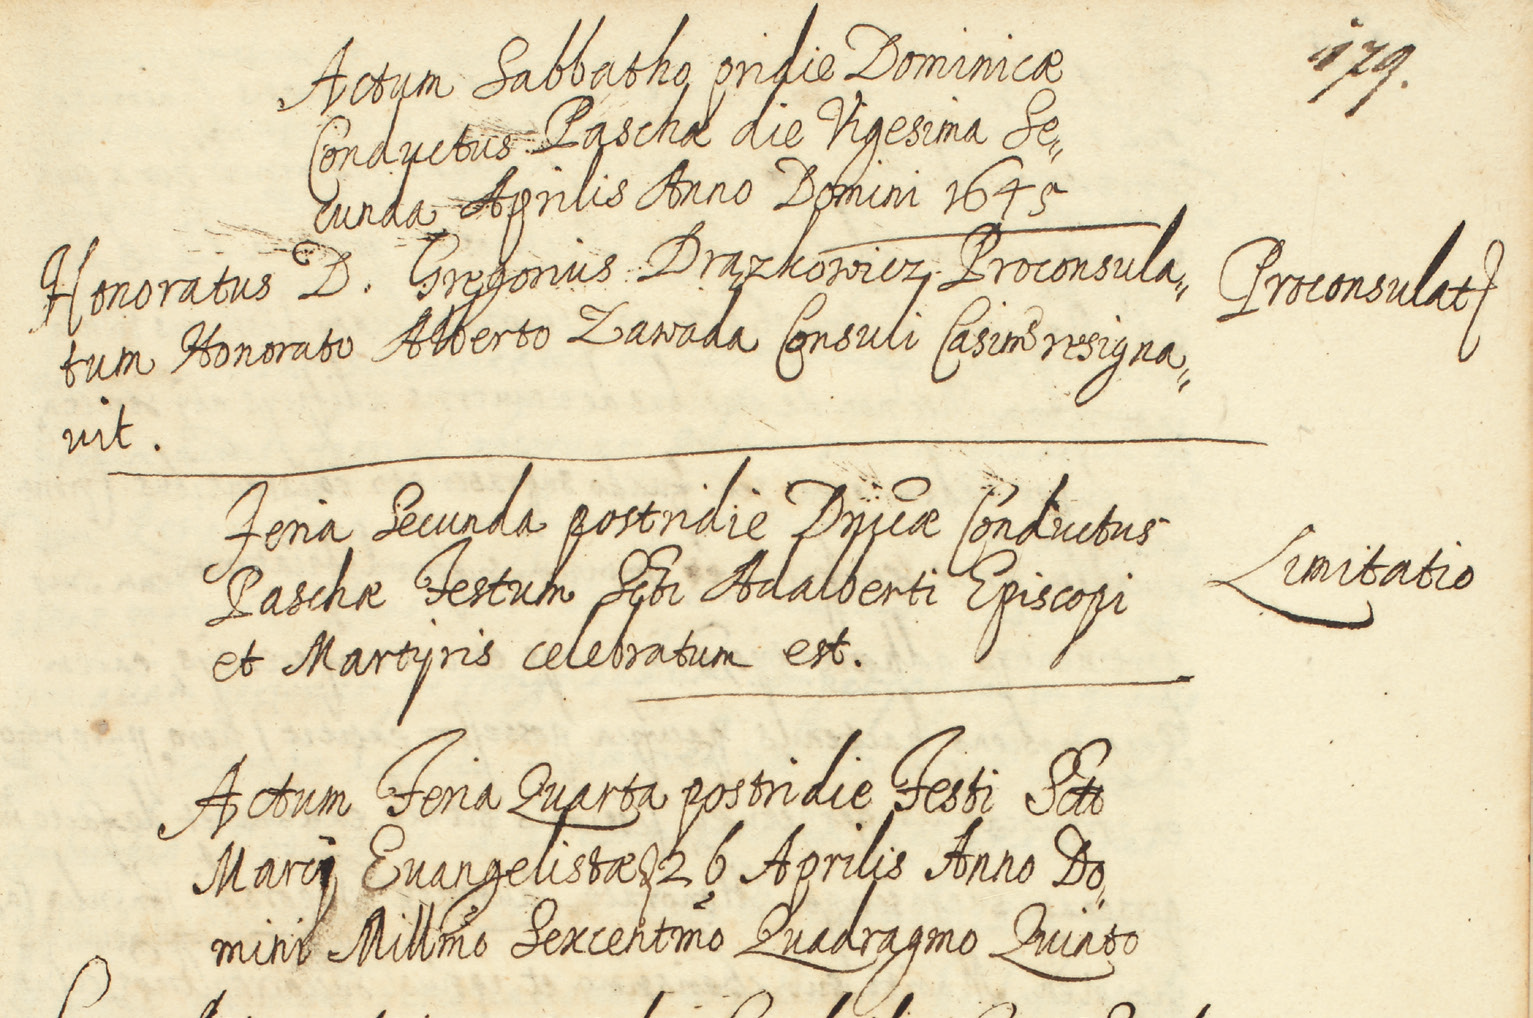 179.
Actum Sabbatho pridie Dominicæ
Conductus Paschæ die Vigesima Se„
cunda Aprilis Anno Domini 1645
Honoratus D. Gregorius Drązkowicz Proconsula„
Proconsulat9
tum Honorato Alberto Zawada Consuli Casimr resigna„
vit.
Feria Secunda postridie Dnicæ Conductus
Paschæ Festum Scti Adalberti Episcopi
Limitatio
et Martyris celebratum est.
Actum Feria Quarta postridie Festi Scti
Marci Euangelistæ 26 Aprilis Anno Do„
mini Millmo Sexcentmo Quadragmo Quinto